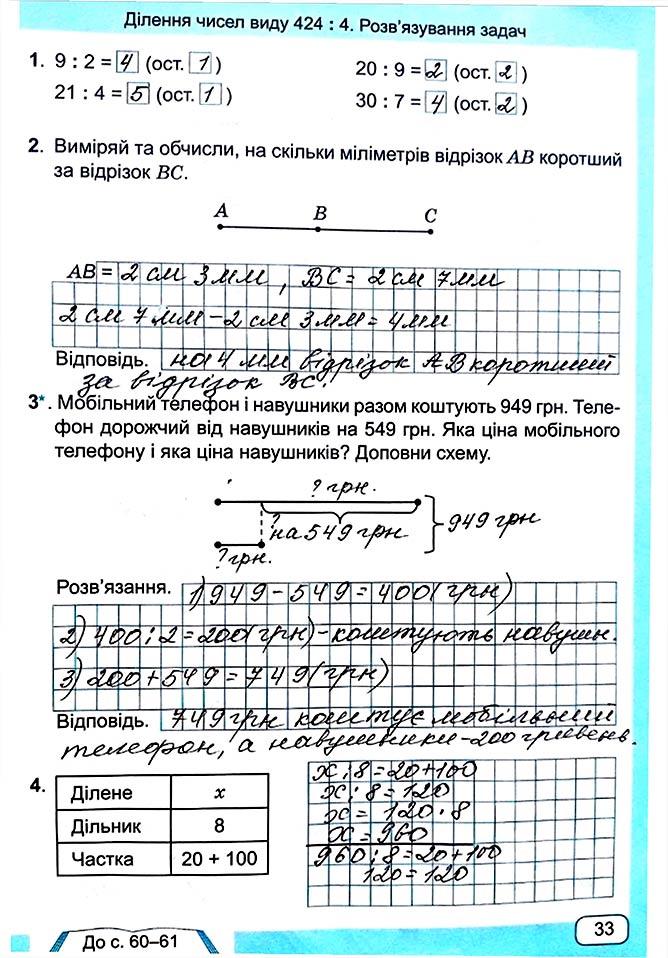 Ділення чисел виду 424 : 4. Розв'язування задач
1. 9 : 2 = 4 (ост. 1) 20 : 9 = 2 (ост. 2)
21 : 4 = 5 (ост. 1) 30 : 7 = 4 (ост. 2)
2. Виміряй та обчисли, на скільки міліметрів відрізок AB коротший
за відрізок BC.
A B C
AB = 2 см 3 мм, BC = 2 см 7 мм
2 см 7 мм – 2 см 3 мм = 4 мм
Відповідь. на 4 мм відрізок AB коротший
за відрізок BC.
3*. Мобільний телефон і навушники разом коштують 949 грн. Теле-
фон дорожчий від навушників на 549 грн. Яка ціна мобільного
телефону і яка ціна навушників? Доповни схему.
? грн.
? на 549 грн 949 грн
? грн.
Розв'язання. 1) 949 – 549 = 400 (грн)
2) 400 : 2 = 200 (грн) – коштують навушн.
3) 200 + 549 = 749 (грн)
Відповідь. 749 грн коштує мобільний
телефон, а навушники – 200 гривень.
4. Ділене x
Дільник 8
Частка 20 + 100
x : 8 = 20 + 100
x : 8 = 120
x = 120 · 8
x = 960
960 : 8 = 20 + 100
120 = 120
До с. 60–61
33